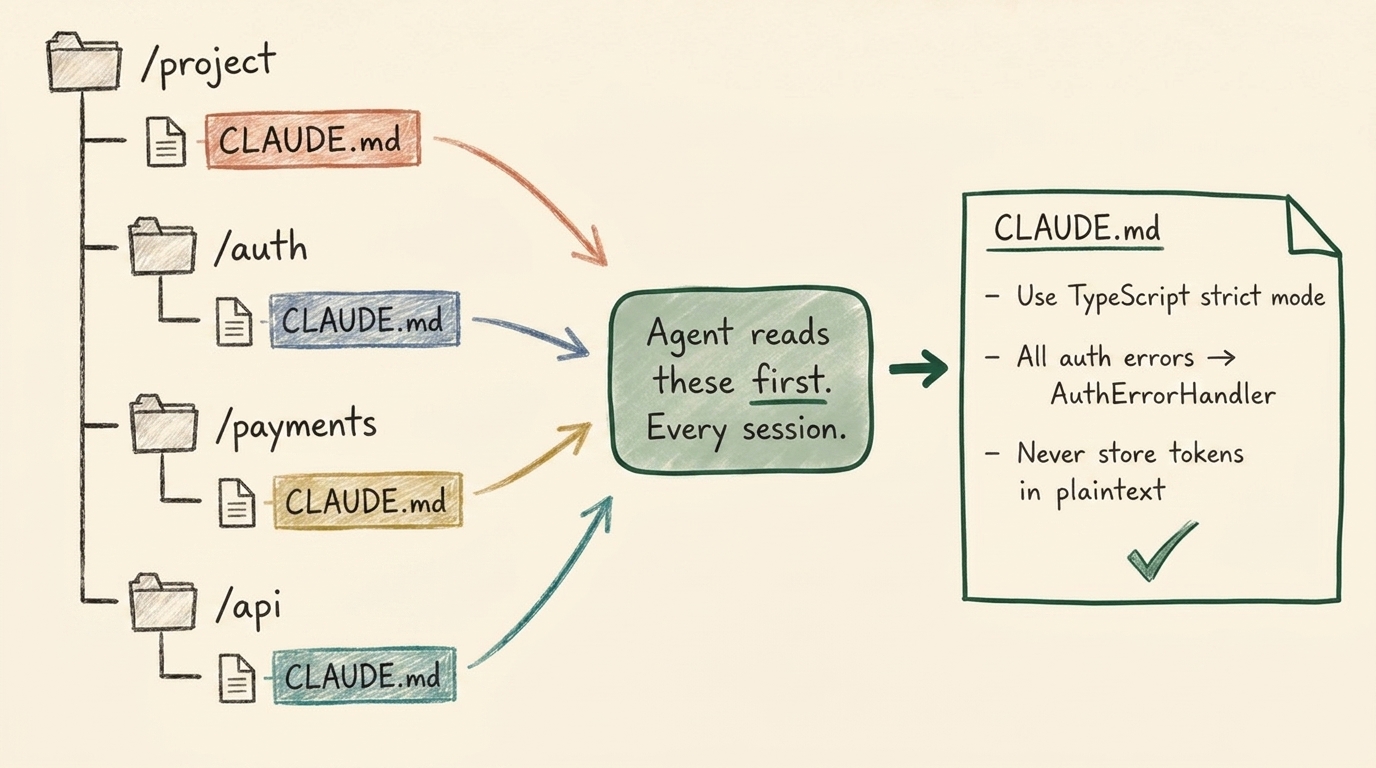 /project
CLAUDE.md
/auth
CLAUDE.md
/payments
CLAUDE.md
/api
CLAUDE.md
Agent reads
these first.
Every session.
CLAUDE.md
- Use TypeScript strict mode
- All auth errors →
AuthErrorHandler
- Never store tokens
in plaintext